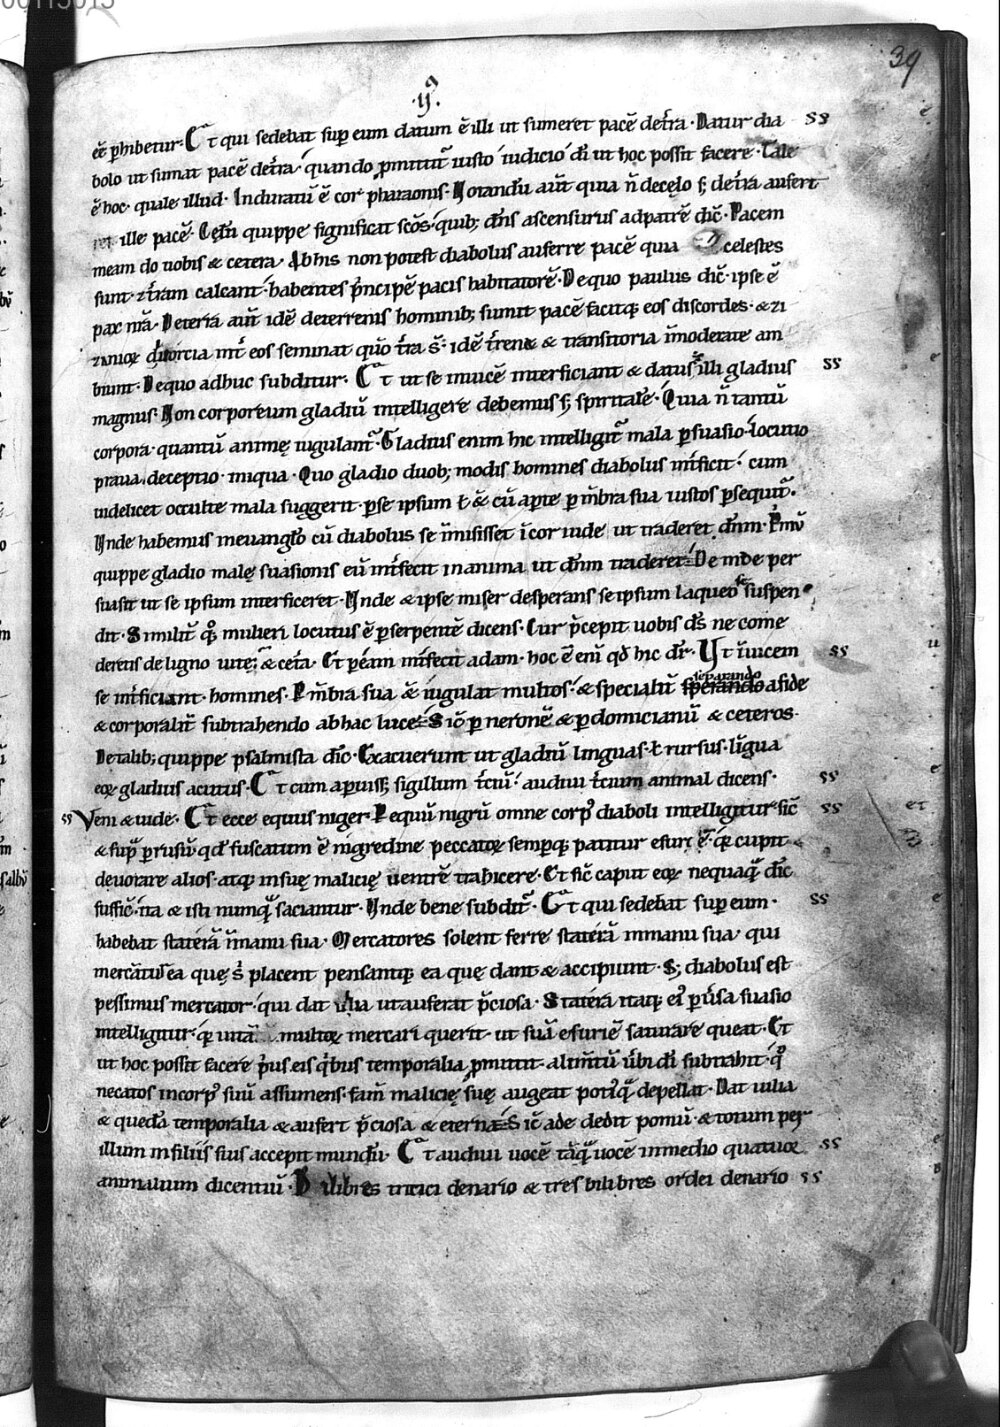 39
·ij᷒·
eē ꝑhibetur· Et qui sedebat sup eum datum ē illi ut sumeret pacē de t̄ra· Datur dia ss
bolo ut sumat pacē de t̄ra· quando ꝑmittit᷑ iusto iudicio dī ut hoc possit facere· Tale
ē hoc· quale illud· Induratū ē cor pharaonis· Notandū aut̄ quia n̄ de cęlo s; de t̄ra aufert
ille pacē· Cęlū quippe significat scōs· quib; dn̄s ascensurus ad patrē dic̄· Pacem
meam do uobis & cetera· Ab his non potest diabolus auferre pacē quia celestes
sunt· & t̄ram calcant· habentes p̄ncipē pacis habitatorē· De quo paulus dic̄· ipse ē
pax nr̄a· De terra aut̄ idē de terrenis hominib; sumit pacē facitq; eos discordes· & zi
zanioꝝ diuortia int̄ eos seminat quō t̄ra s̄· idē t̄rena & transitoria īmoderate am
biunt· De quo adhuc subditur· Et ut se inuicē interficiant & datus ē illi gladius ss
magnus· Non corporeum gladiū intelligere debemus s; spiritalē· Quia n̄ tantū
corpora· quantū animę iugulant᷑· Gladius enim hic intelligit᷑ mala ꝑsuasio· locutio
praua· deceptio iniqua· Quo gladio duob; modis homines diabolus int̄ficit· cum
uidelicet occulte mala suggerit ꝑ se ipsum ł &̄ cū aꝑte ꝑ mēbra sua iustos ꝑsequit᷑·
Unde habemus in euangl̄o cū diabolus se īmisisset ī cor iude ut traderet dn̄m· Primū
quippe gladio malę suasionis eū int̄fecit in anima ut dn̄m traderet· Deinde per
suasit ut se ipsum interficeret· Unde & ipse miser desperans se ipsum laqueo se suspen
dit· Similit̄ q̄ mulieri locutus ē ꝑ serpentē dicens· Cur p̄cepit uobis ds̄ ne come
deretis de ligno uitę· & cet̄a· Et ꝑ eam int̄fecit adam· hoc ē enī qd̄ hic dr̄· Vt īuicem ss
se int̄ficiant· homines· Ꝑ mēbra sua &̄ iugulat multos· & specialit̄ separando sperando a fide
& corporalit̄ subtrahendo ab hac luce· Sic̄ ꝑ neronē & ꝑ domicianū & ceteros·
De talib; quippe psalmista dic̄· Exacuerunt ut gladiū linguas· & rursus· līgua
eoꝝ gladius acutus· Et cum aperuiss; sigillum t̄ciū· audiui t̄cium animal dicens· ss
ss Veni & uide· Et ecce equus niger· Ꝑ equū nigrū omne corp᷒ diaboli intelligitur· sic̄ ss
& sup᷒ ꝑ rusū qd̄ fuscatum ē nigredine peccatoꝝ semꝑq; patitur esuriē· q̄ cupit
deuorare alios· atq; in suę malicię uentrē trahicere· Et sic̄ caput eoꝝ nequaq̄ dic̄
suffic̄· ita & isti nunq̄ saciantur· Unde bene subdit᷑· Et qui sedebat super eum· ss
habebat staterā ī manu sua· Mercatores solent ferre staterā in manu sua· qui
mercātus ea quę s̄ placent pensantq; ea quę dant & accipiunt· S; diabolus est
pessimus mercator· qui dat uilia ut auferat p̄ciosa· Staterā itaq; ei᷒ ꝑuersa suasio
intelligitur· q̄ uitā multoꝝ mercari querit· ut suā esuriē saturare queat· Et
ut hoc possit facere p̄us eis q̄bus temporalia ꝑmittit· alimtū ūbi dī subtrahit· q᷒
necatos in corp᷒ suū assumens· famē malicię suę augeat poti᷒ q̄ depellat· Dat uilia
& quedā temporalia & aufert p̄ciosa & eterna· Sic̄ ade dedit pomū· & totum per
illum in filiis suis accepit mundū· Et audiui uocē tāq̄ uocē in medio quatuor ss
animalium dicentiū· Bilibres tritici denario & tres bilibres ordei denario ss